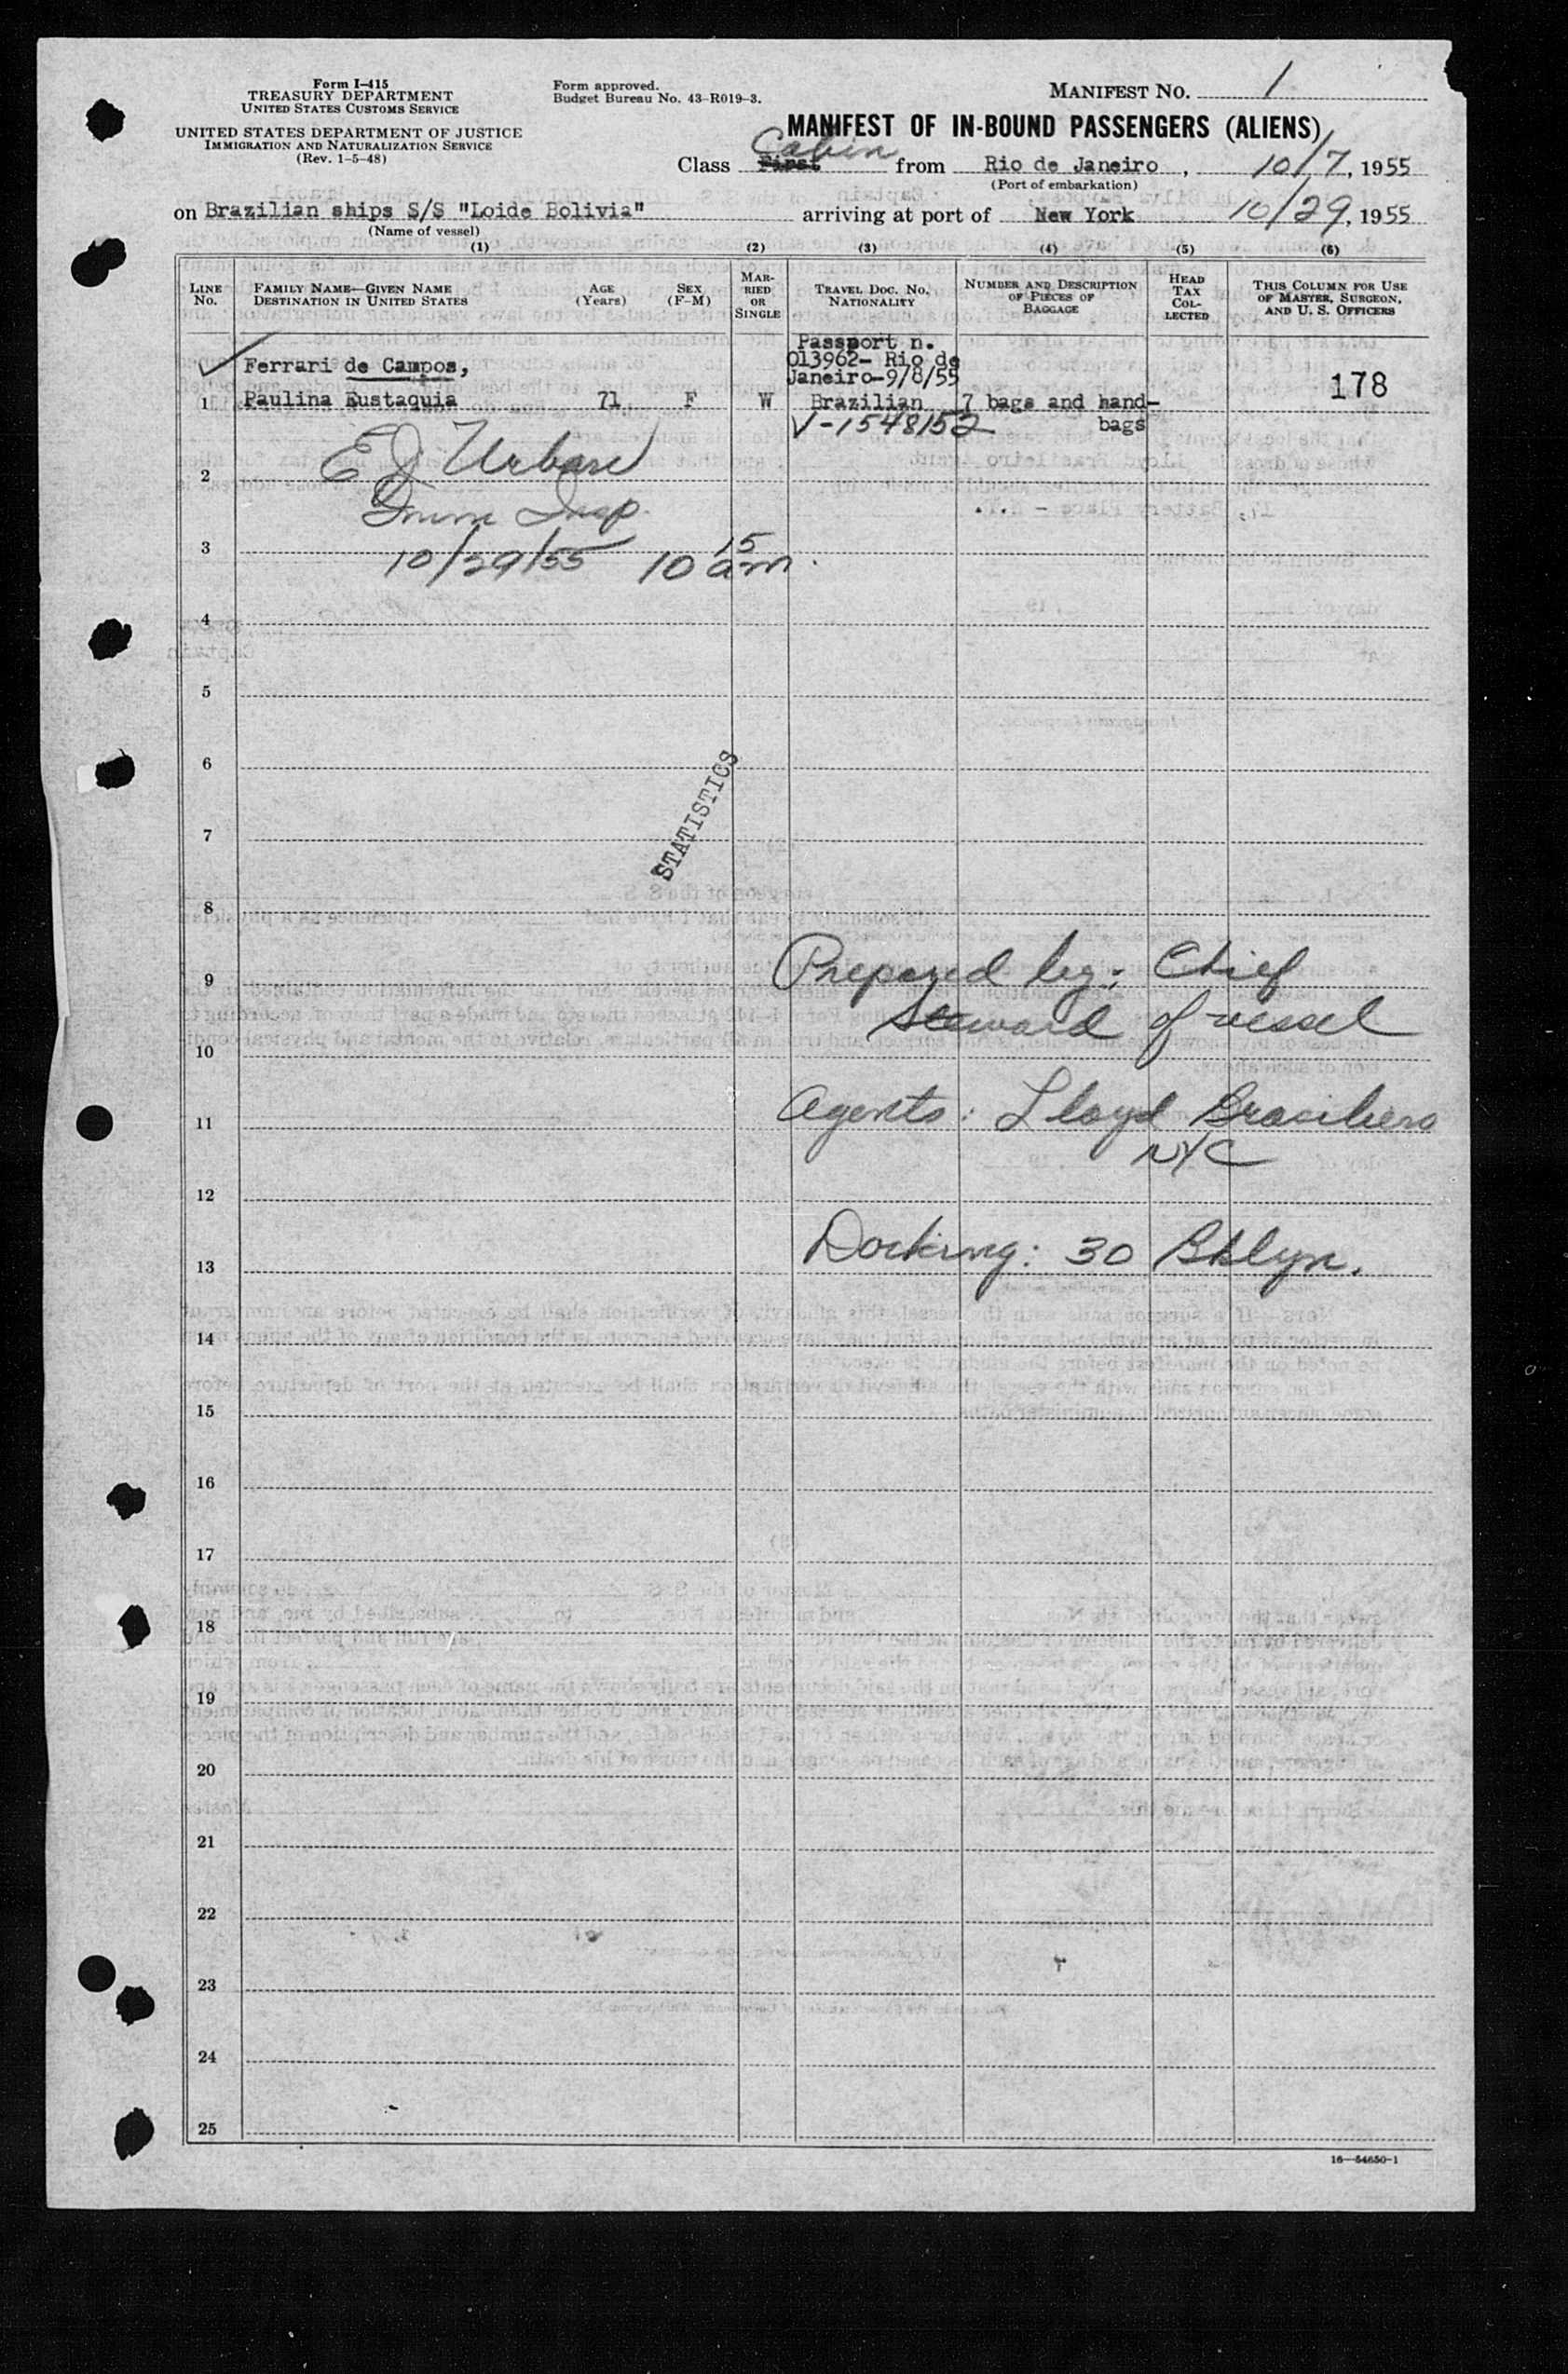 Form I-415
TREASURY DEPARTMENT
UNITED STATES CUSTOMS SERVICE
UNITED STATES DEPARTMENT OF JUSTICE
IMMIGRATION AND NATURALIZATION SERVICE
(Rev. 1-5-48)
Form approved.
Budget Bureau No. 43-R019-3.
MANIFEST NO. 1
MANIFEST OF IN-BOUND PASSENGERS (ALIENS)
Cabin
Class First from Rio de Janeiro, 10/7, 1955
(Port of embarkation)
on Brazilian ships S/S "Loide Bolivia" arriving at port of New York 10/29, 1955
(Name of vessel)
(1) (2) (3) (4) (5) (6)
LINE No.
FAMILY NAME—GIVEN NAME
DESTINATION IN UNITED STATES
AGE (Years)
SEX (F-M)
MARRIED OR SINGLE
TRAVEL DOC. NO.
NATIONALITY
NUMBER AND DESCRIPTION OF PIECES OF BAGGAGE
HEAD TAX COLLECTED
THIS COLUMN FOR USE OF MASTER, SURGEON, AND U. S. OFFICERS
Passport n.
Ferrari de Campos, 013962- Rio de
Janeiro-9/8/55 178
1 Paulina Eustaquia 71 F W Brazilian 7 bags and hand-
V-1548152 bags
E J Urban
2
Imm Insp.
3
10/29/55 10 15 am.
4
5
6
STATISTICS
7
8
9 Prepared by: Chief
Steward of vessel
10
11 Agents: Lloyd Brasiliero
NYC
12
13 Docking: 30 Bklyn.
14
15
16
17
18
19
20
21
22
23
24
25
16—54650-1